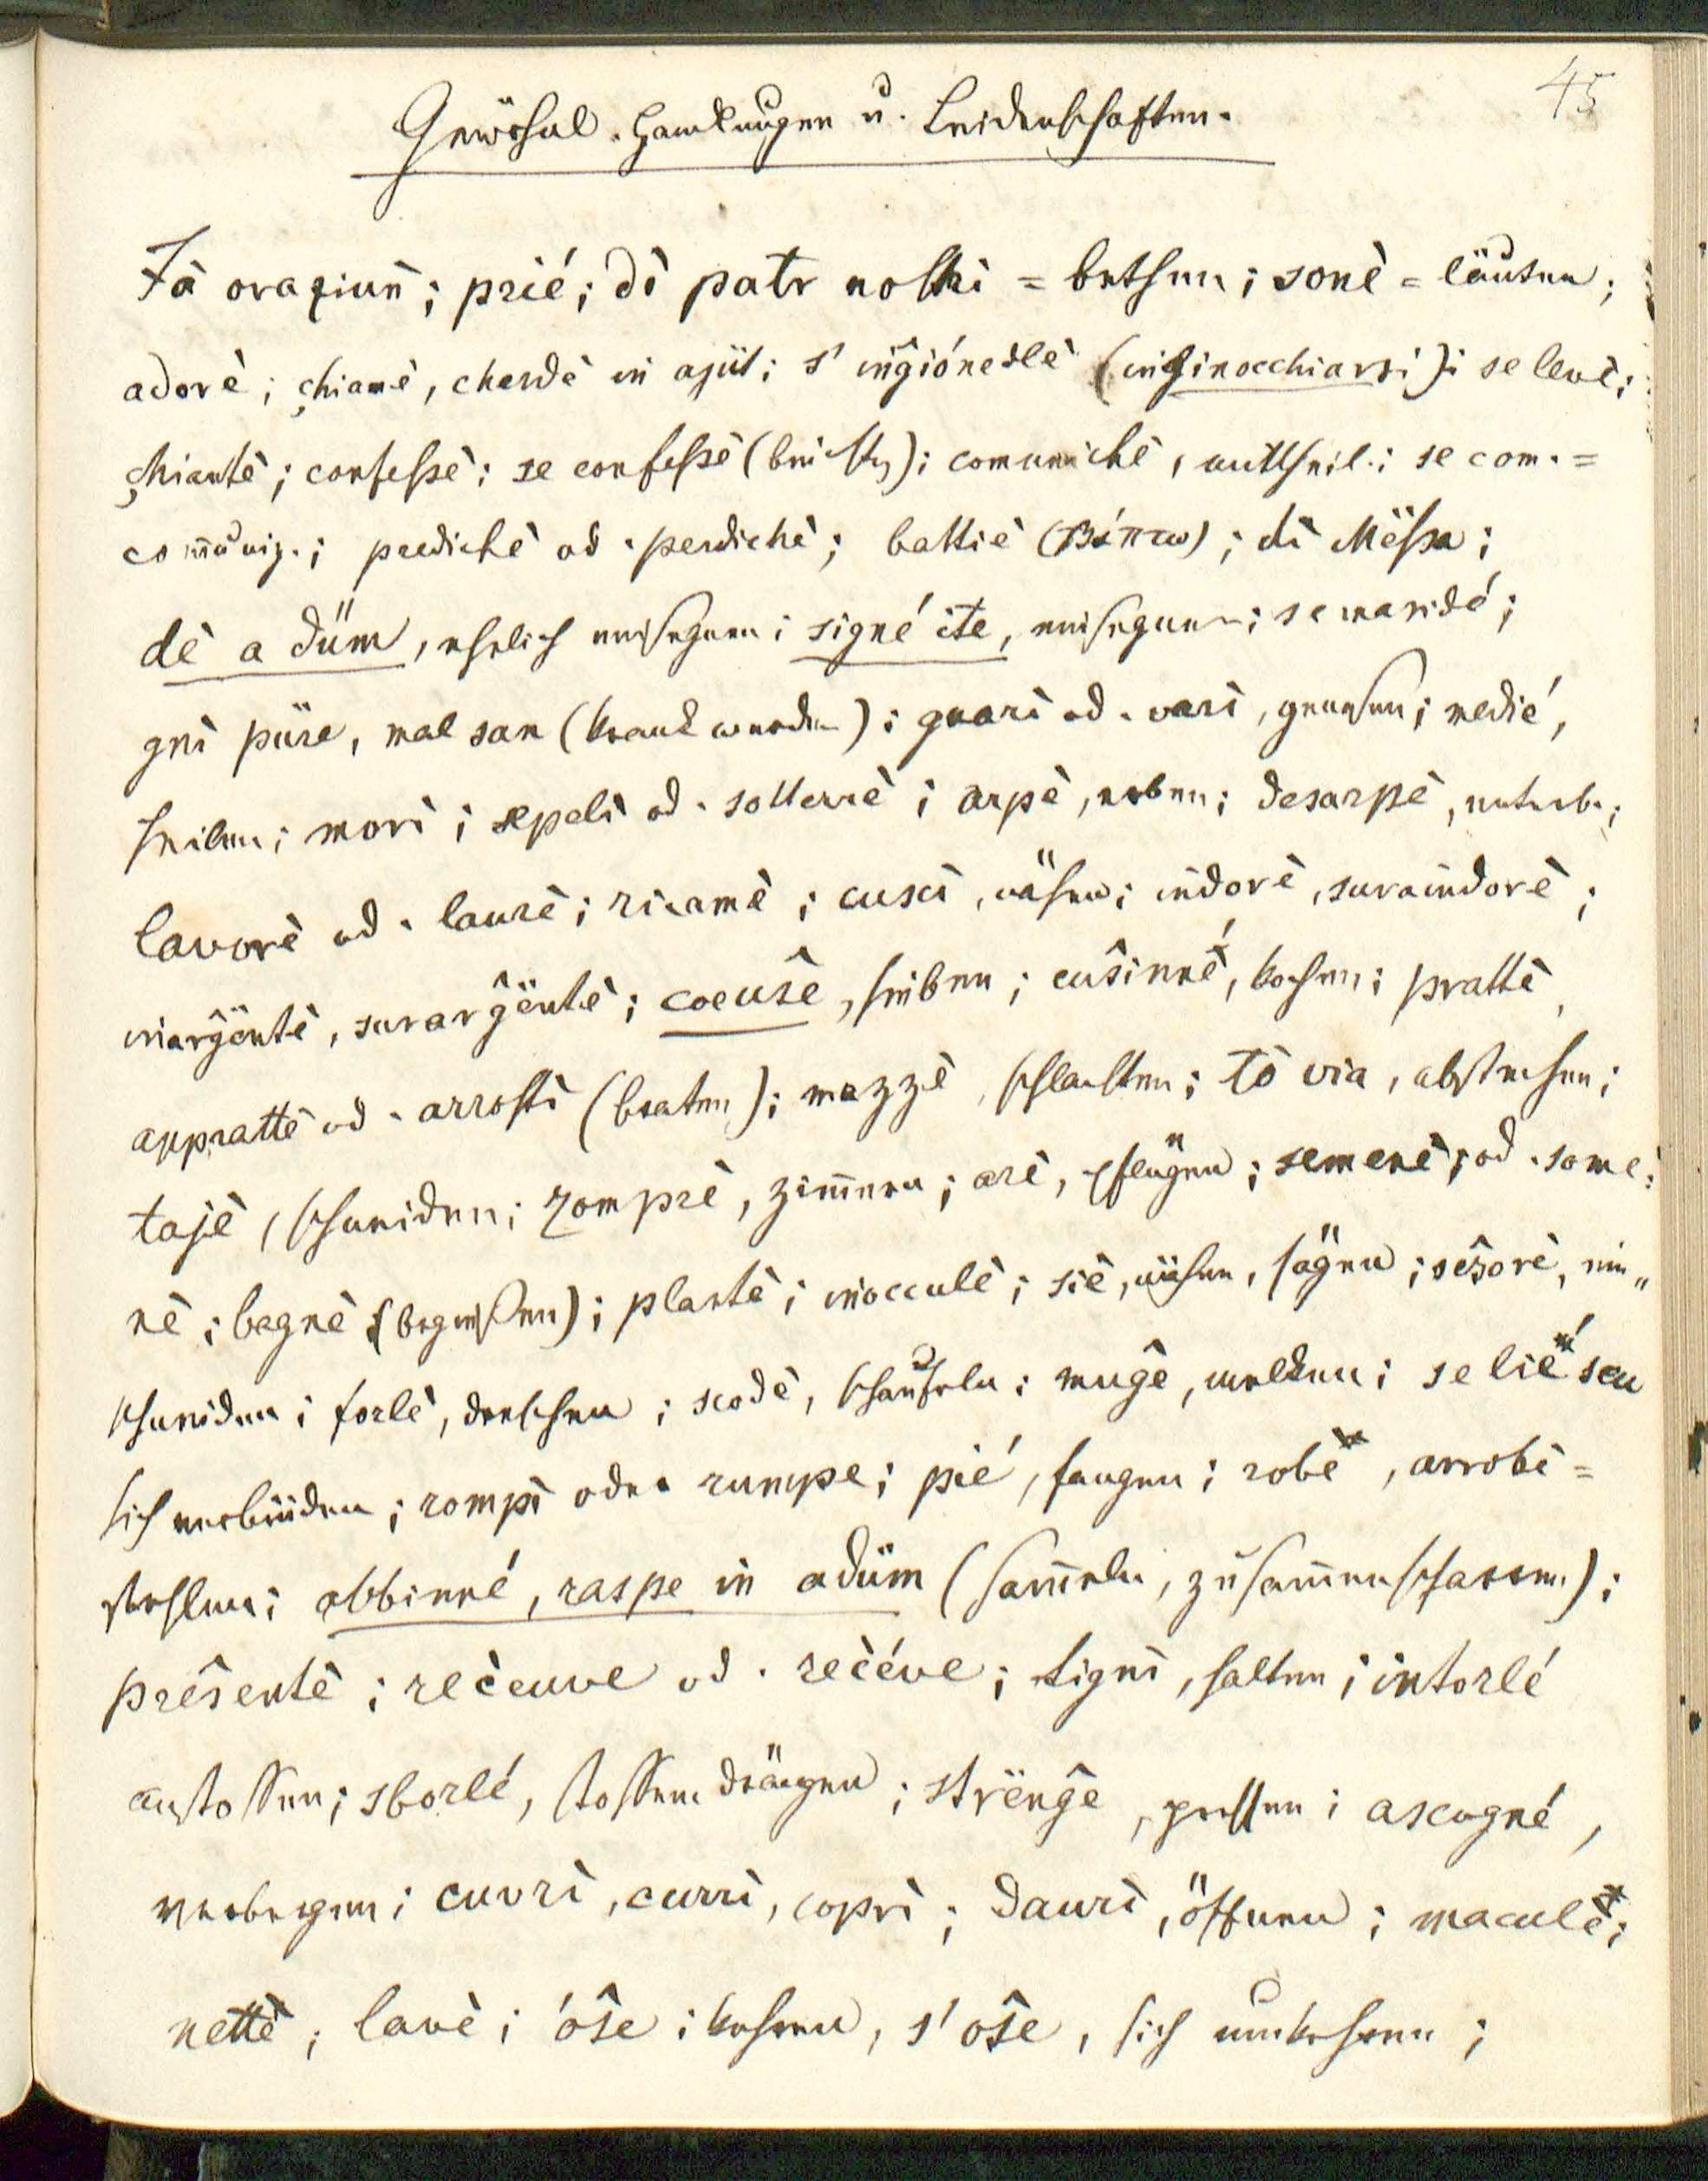 45
Gewöhnl. Handlungen u. Leidenschaften.
Fà oraziun̄; prié; dì patr nostri = bethen; sonè = läuten;
adorè; çhiamè, cherdè in ajüt; s' ingiónedlè (inginocchiarsi); se levè;
çhiantè; confessè; se confessè (beichten); comunichè, mittheil.; se com. =
com̄uniz.; predichè od. perdichè; battiè (βάπτω); dì Mëssa;
dè a düm, ehelich einsegnen; signé ite, einsegnen; se maridé;
gnì püre, mal san (krank werden); guarì od. varì, genesen; medié,
heilen; morì; sepelì od. sotterrè; arpè, erben; desarpè, enterb.;
lavorè od. laurè; ricamè; cuscì, nähen; indorè, suraindorè;
inargëntè, surargëntè; coeuse, sieden; cusinné, kochen; prattè,
apprattè od. arrostì (braten); mazzè, schlachten; tò via, abstechen;
tajè, schneiden; zomprè, zim̄ern; arè, pflügen; semenè; od. some=
nè; bagnè (begiessen); plantè; inocculè; siè, mähen, sägen; sesorè, ein„
schneiden; forlè, dreschen; scodè, schaufeln; muge, melken; se lié seu
sich verbinden; rompì oder rumpe; pié, fangen; robè, arrobè =
stehlen; abbinné, raspe in adüm (sam̄eln, zusam̄enscharren);
presentè; receuve od. recéve; tignì, halten; intorlé
anstossen; sborlé, stossen drängen; strënge, pressen; ascogné,
verbergen; cuvrì, currì, coprì; daurì, öffnen; maculè;
nettè, lavè; óse; kehren, s' ose, sich umkehren;